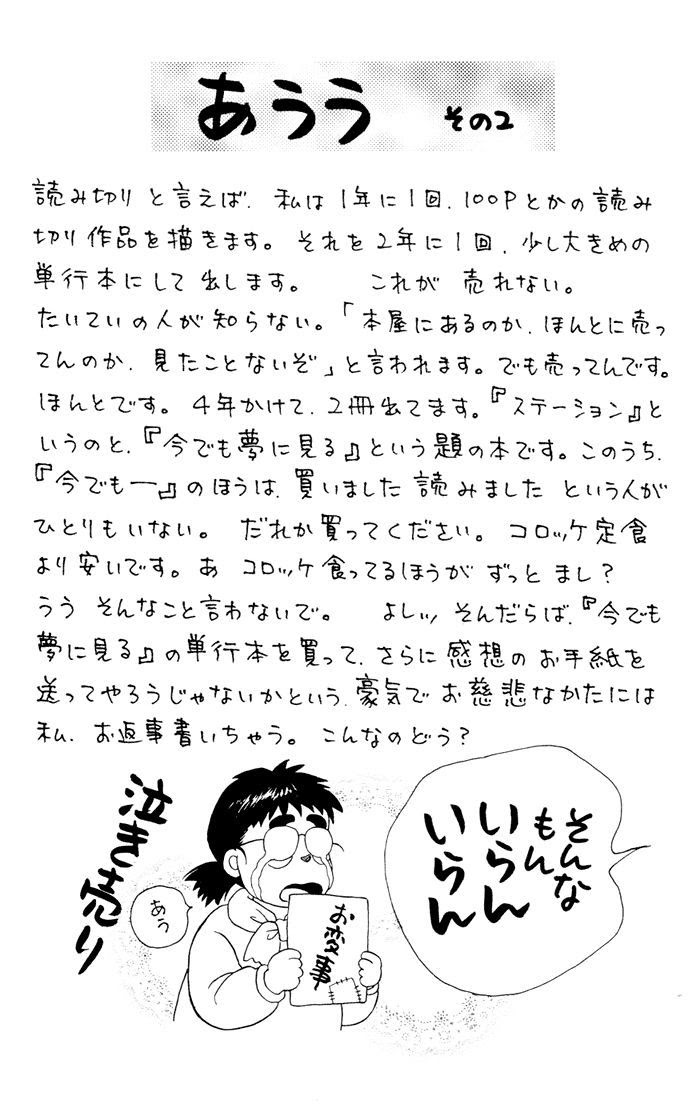 あうう その2
読み切りと言えば、私は1年に1回、100Pとかの読み
切り作品を描きます。それを2年に1回、少し大きめの
単行本にして出します。 これが売れない。
たいていの人が知らない。「本屋にあるのか、ほんとに売っ
てんのか、見たことないぞ」と言われます。でも売ってんです。
ほんとです。4年かけて、2冊出てます。『ステーション』と
いうのと、『今でも夢に見る』という題の本です。このうち、
『今でも―』のほうは、買いました読みましたという人が
ひとりもいない。 だれか買ってください。コロッケ定食
より安いです。あ コロッケ食ってるほうがずっとまし?
うう そんなこと言わないで。 よしッ、そんだらば、『今でも
夢に見る』の単行本を買って、さらに感想のお手紙を
送ってやろうじゃないかという、豪気でお慈悲なかたには
私、お返事書いちゃう。こんなのどう?
そんな
もん
いらん
いらん
泣き売り
あう
お変事